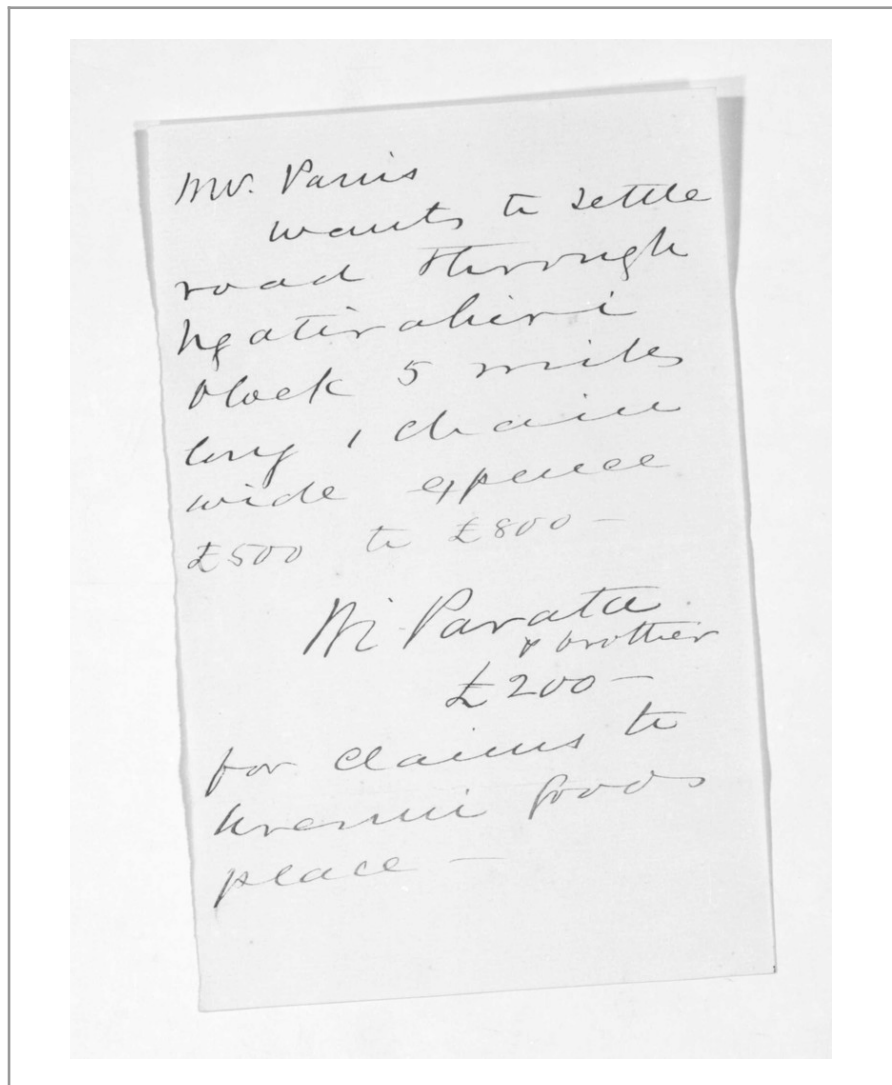 Mr. Parris
wants to settle
road through
Ngatirahiri
block 5 miles
long 1 chain
wide expence
£500 to £800 —
Wi Parata
& brother
£200 —
for claims to
Urenui Goods
place —